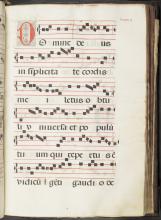 Domine de us
in sīplicita te cordis
me i letus o btu
li v niversa et po pulū
tu um qui repe rtus ē
vidi cū ī gēti gaudi o